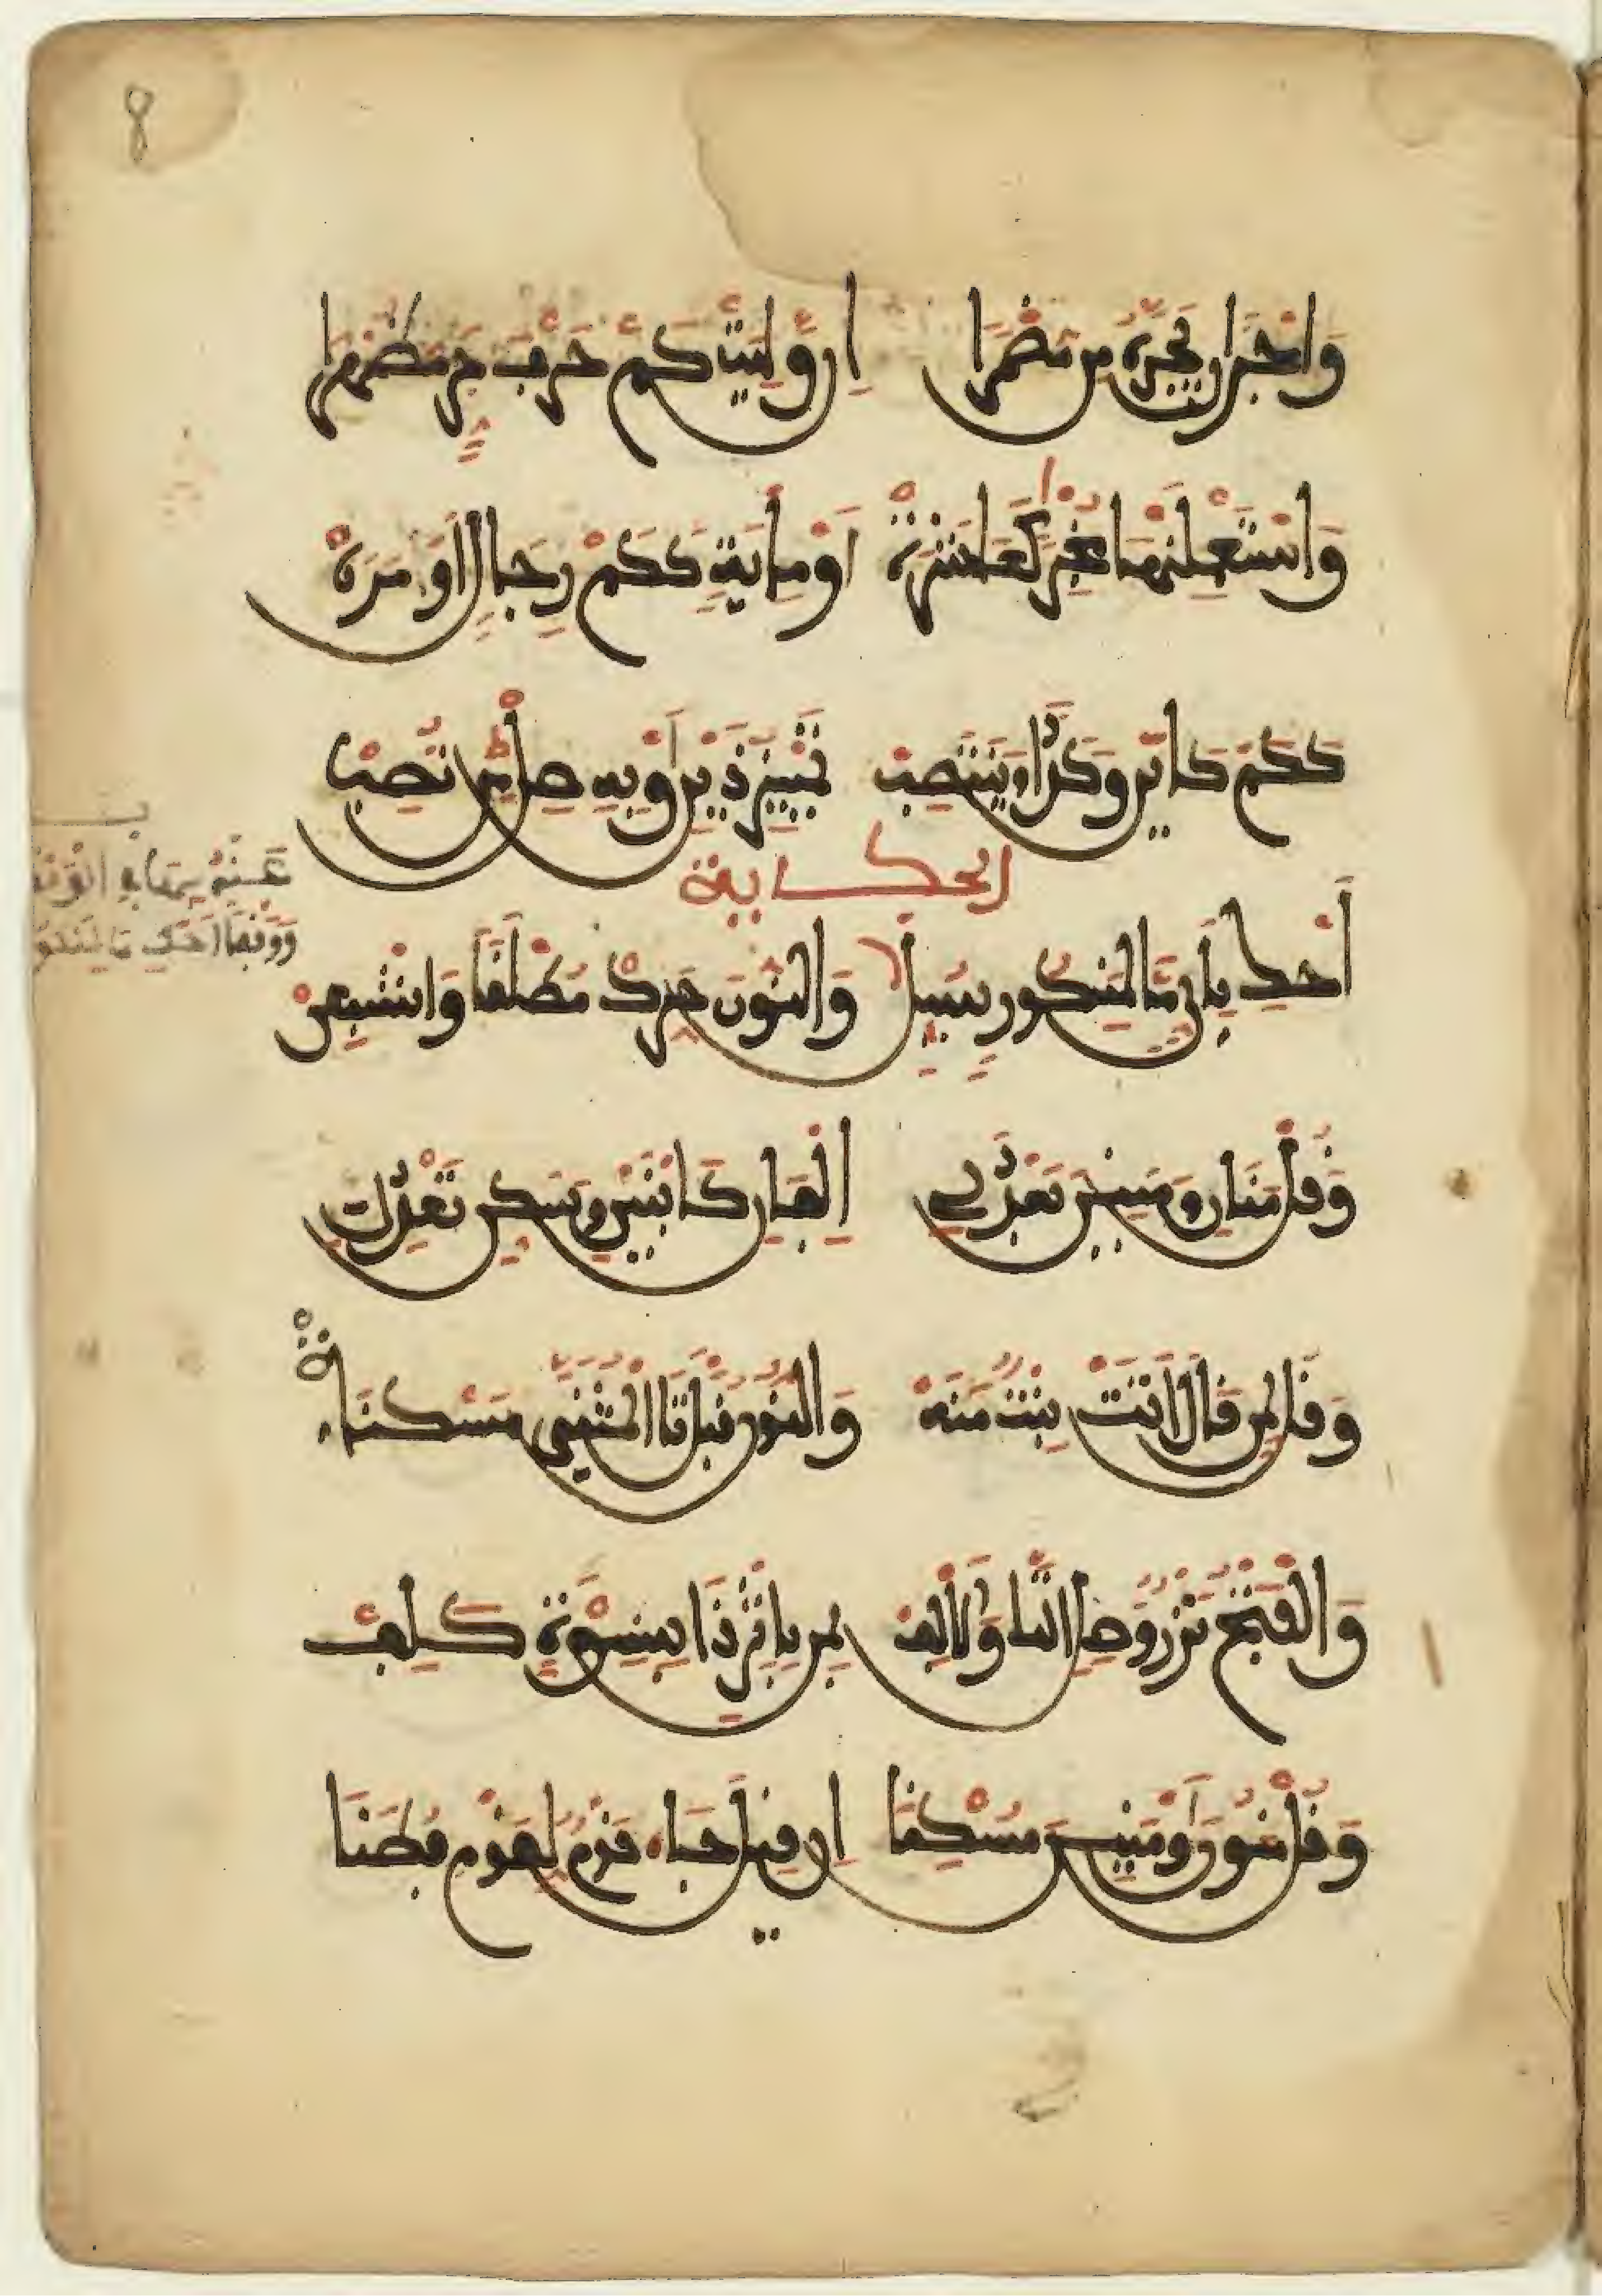 وَاجِزْ اَن تَجُرَّهُ مِن مُضْمَرَا اِن وَلِيَتْ كَمْ حَرْفَ جَرٍّ مُظْهَرَا
وَاسْتَعْمِلَنْهَا مُخْبِرًا كَعَشَرَهْ اَوْ مِايَةٍ كَكَمْ رِجَالٍ اَوْ مَرَهْ
كَكَمْ كَاَيِّن وَكَذَا وَيَنْتَصِبْ تَمْيِيزُ ذَيْنِ اَوْ بِهِ صِلْ مِن تُصِبْ
الحكاية
اَحْكِ بِاَيٍّ مَا لِمَنكُورٍ سُئِلْ
عَنْهُ بِهَا فِي الْوَقْفِ
وَوَقْفًا احْكِ مَا لِمَنكُو
وَالنُّونَ حَرِّكْ مُطْلَقًا وَاشْبِعَنْ
وَقُلْ مَنَانِ وَمَنَيْنِ بَعْدَ لِي اِلْفَانِ كَابْنَيْنِ وَسَكِّن تَعْدِلِ
وَقُل لِمَن قَالَ اَتَتْ بِنْتٌ مَنَهْ وَالنُّونُ قَبْلَ تَا الْمُثَنَّى مُسْكَنَهْ
وَالْفَتْحُ نَزْرٌ وَصِلِ التَّا وَالْاَلِفْ بِمَن بِاِثْرِ ذَا بِنِسْوَةٍ كَلِفْ
وَقُلْ مَنُونَ وَمَنِينَ مُسْكِنَا اِن قِيلَ جَاءَ قَوْمٌ لِقَوْمٍ فُطَنَا
8